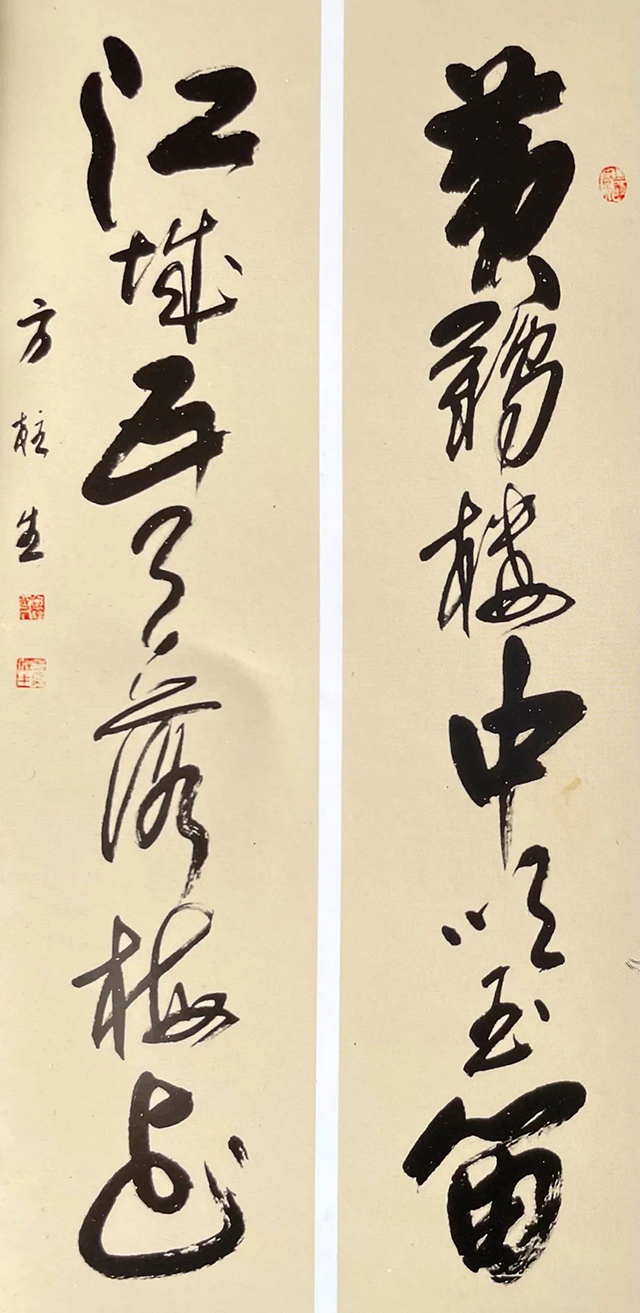 黄鹤楼中吹玉笛
江城五月落梅花
方柱生